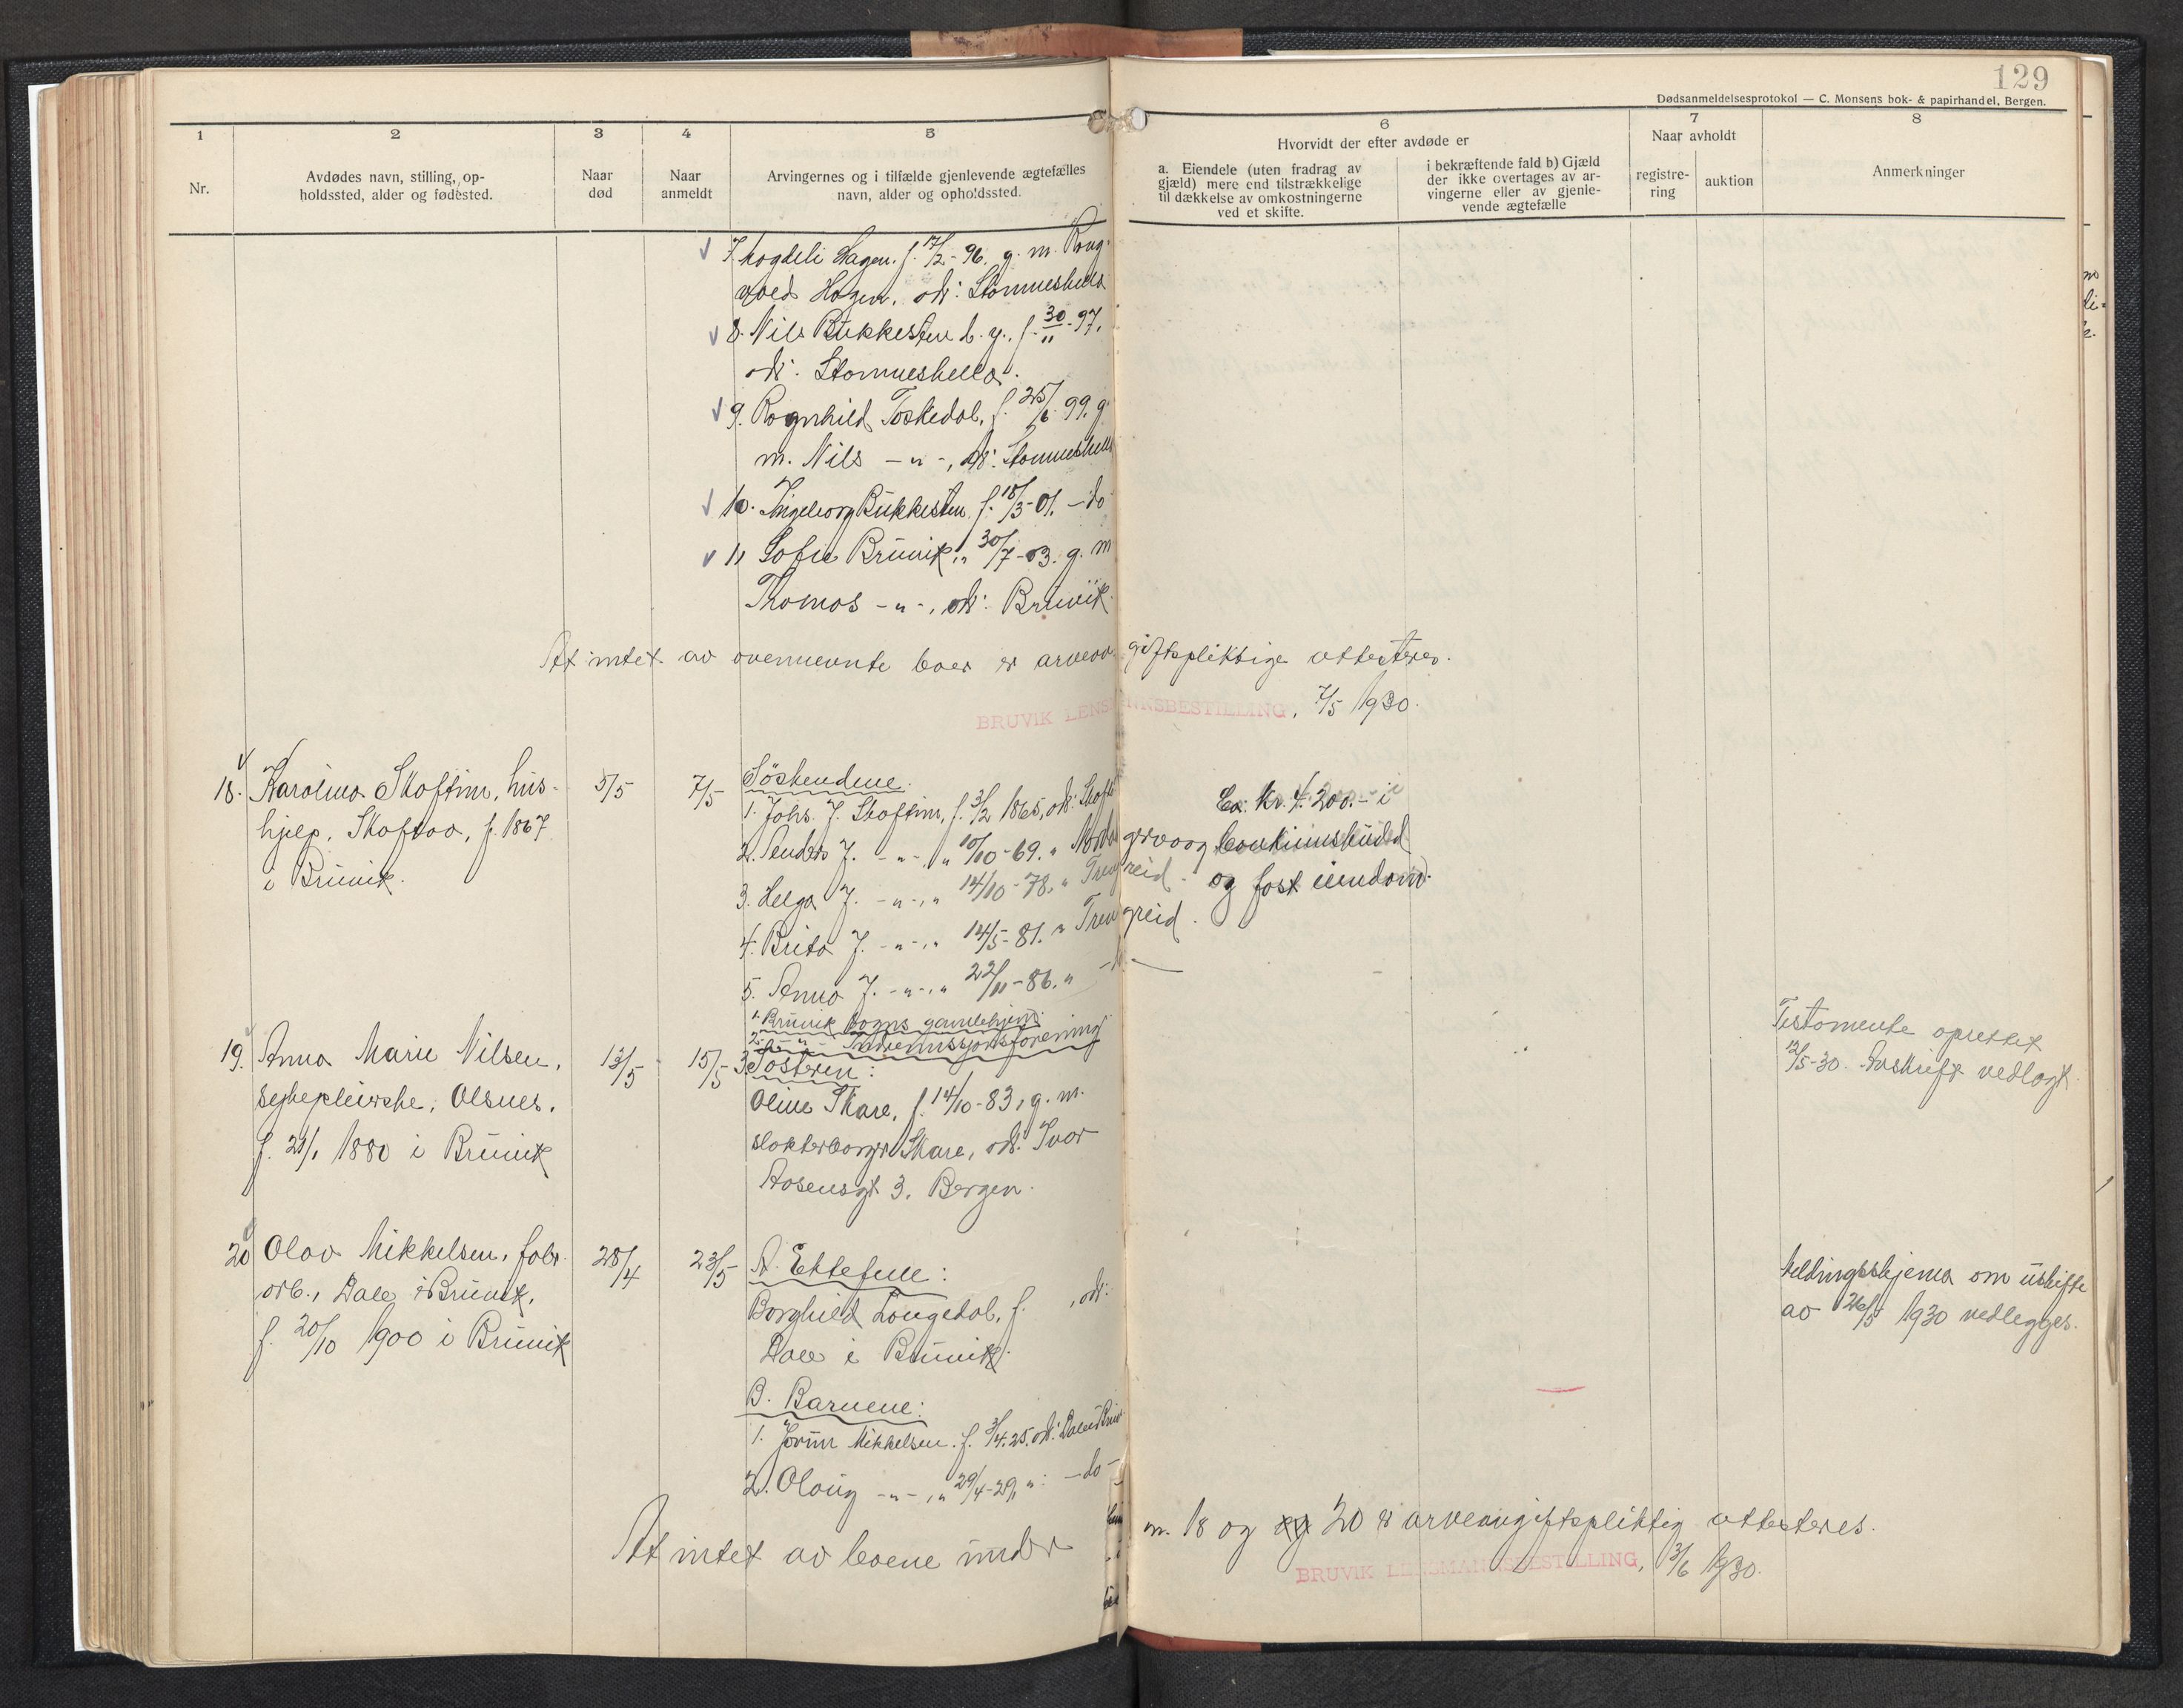 129
Dødsanmeldelsesprotokol — C. Monsens bok- & papirhandel, Bergen.
1
2
3
4
5
6
7
8
Nr.
Avdødes navn, stilling, op-
holdssted, alder og fødested.
Naar
død
Naar
anmeldt
Arvingernes og i tilfælde gjenlevende ægtefælles
navn, alder og opholdssted.
Hvorvidt der efter avdøde er
a. Eiendele (uten fradrag av
gjæld) mere end tilstrækkelige
til dækkelse av omkostningerne
ved et skifte.
i bekræftende fald b) Gjæld
der ikke overtages av ar-
vingerne eller av gjenle-
vende ægtefælle
Naar avholdt
registre-
ring
auktion
Anmerkninger
7. Hagen. f. 17/2-96. g. m. Rong-
vald Hagen, ods: Stamneshella
8. Nils Bukkesten b. y., f. 30/11-97.
ods: Stamneshella.
9. Ragnhild Toskedal, f. 25/6-99. g.
m. Nils -"-, ods: Stamneshella
10. Ingeborg Bukkesten, f. 18/3-01. -do
11 Sofie Bruvik, " 30/7-03. g. m
Thomas -"-, ods: Bruvik.
At intet av ovennevnte boer er arveavgiftspliktige attesteres.
BRUVIK LENSMANNSBESTILLING, 7/5 1930.
18. Karolina Skoftun, hus-
hjelp, Skaftaa, f. 1867
i Bruvik.
5/5
7/5
Søskendene:
1. Johs. J. Skoftun, f. 3/2 1865, ods: Skoft
2. Anders J. -"-, " 10/10-69. " Nordre
3. Helga J. -"-, " 14/10-78. " Trengreid.
4. Brita J. -"-, " 14/5-81. " Trengreid.
5. Anna J. -"-, " 22/11-86. " -do-
Ca. kr. 4.200.- i
og fast eiendom.
19. Anna Marie Nilsen,
sykepleierske, Olsnes,
f. 21/1 1880 i Bruvik
13/5
15/5
1. Bruvik sogns gamlehjem.
2. -"- Indremissjonsforening
3. Søsteren:
Oline Skare, f. 14/10-83, g. m.
slakterborger Skare, ods: Ivar
Aasensgt 3. Bergen.
Testamente oprettet
12/5-30. Avskrift vedlagt.
20 Olav Mikkelsen, fabr.
arb., Dale i Bruvik,
f. 20/10 1900 i Bruvik
28/4
23/5
A. Ektefelle:
Borghild Langedal, f. , ods:
Dale i Bruvik.
B. Barnene:
1. Jorunn Mikkelsen. f. 3/4.25. ods: Dale i Bruvik
2. Olaug -"-, " 29/4-29, ": -do-
Meldingsskjema om uskifte
av 26/5 1930 vedlegges.
At intet av boene under nr. 18 og 20 er arveavgiftspliktig attesteres.
BRUVIK LENSMANNSBESTILLING, 3/6 1930.